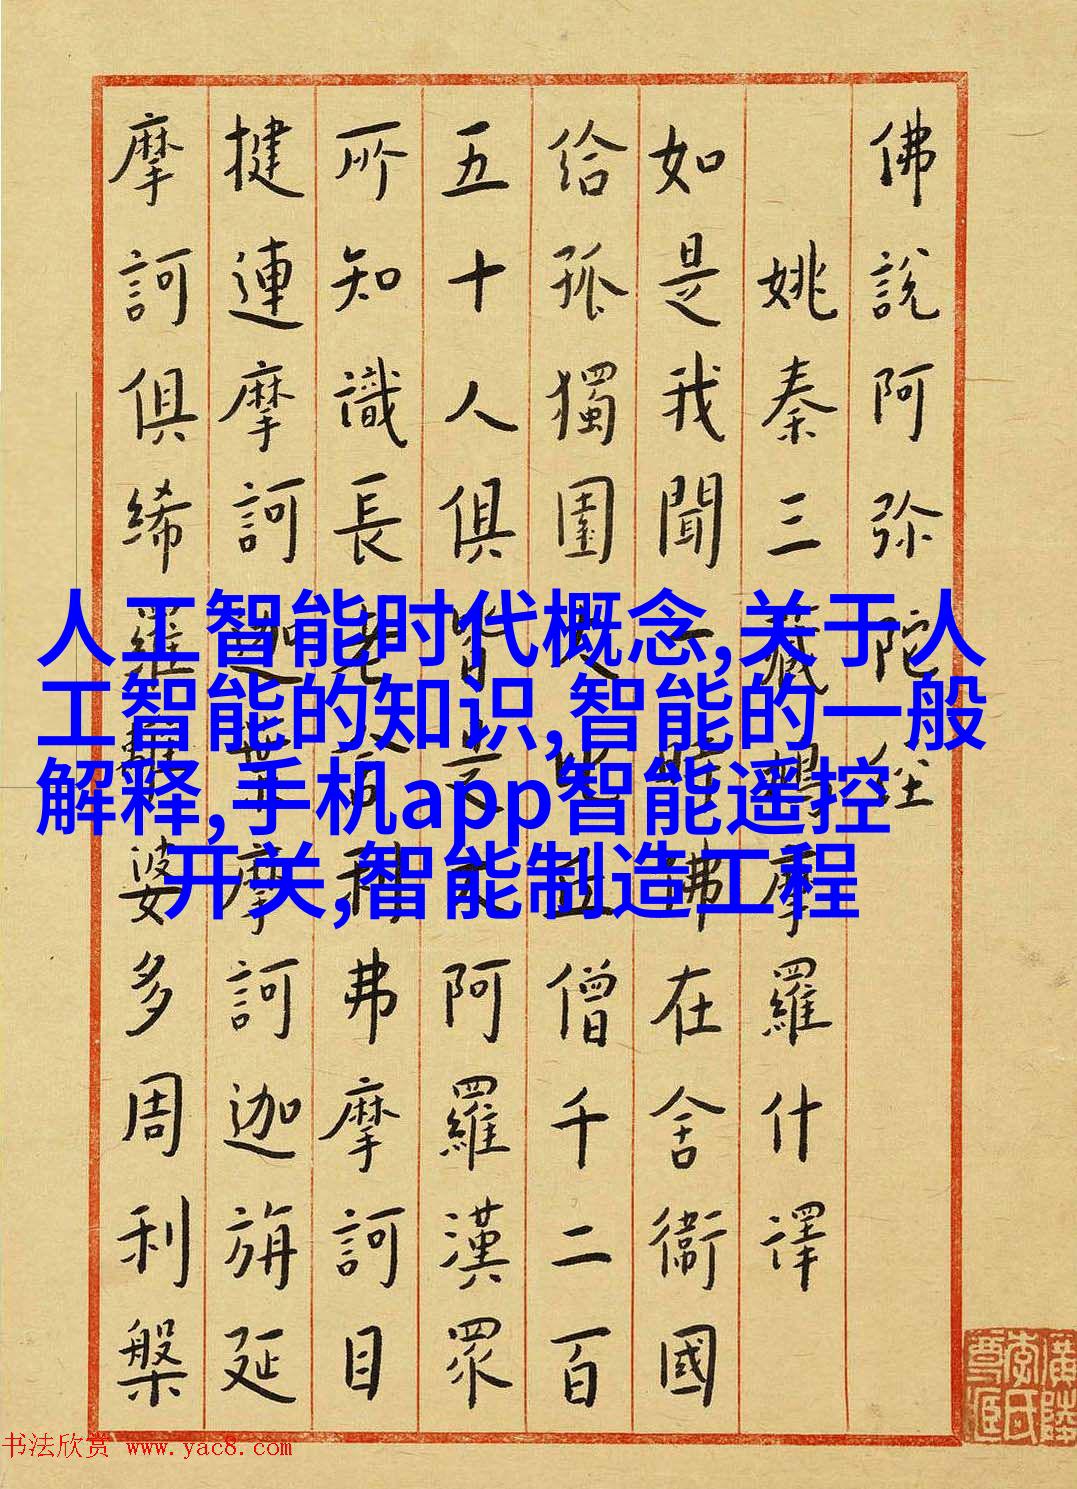 佛說阿弥陀经
姚秦三藏鳩摩羅什譯
如是我聞一時佛在舍衞國
给孤獨園大比丘僧千二百
五十人俱皆是大阿羅漢眾
所知識長老舍利弗摩訶目
揵連摩訶迦葉摩訶迦旃延
摩訶俱絺羅離婆多周利槃
人工智能时代概念,关于人
工智能的知识,智能的一般
解释,手机app智能遥控
开关,智能制造工程
书法欣赏 www.yac8.com